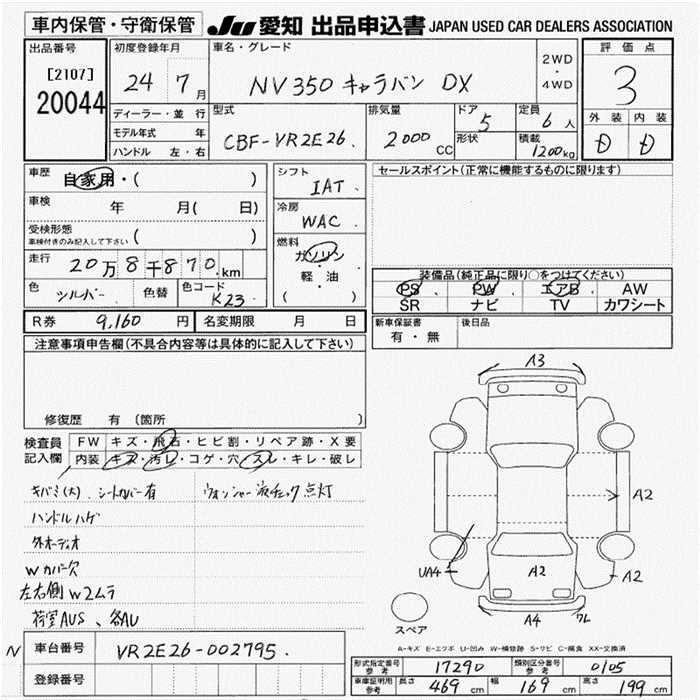 車内保管・守衛保管
JU 愛知 出品申込書 JAPAN USED CAR DEALERS ASSOCIATION
出品番号 [2107] 20044
初度登録年月 24 7月
車名・グレード NV350 キャラバン DX
2WD・4WD
評価点 3
外装 D 内装 D
ディーラー・並行
モデル年式 年
ハンドル 左・右
型式 CBF-VR2E26.
排気量 2000 CC
ドア 5
形状
定員 6人
積載 1200kg
車歴 自家用・( )
車検 年 月( 日)
受検形態 車検付きのみ記入して下さい ( )
走行 20万8千870.km
色 シルバー 色替 色コード K23.
シフト IAT.
冷房 WAC.
燃料 ガソリン・軽・油 ( )
セールスポイント(正常に機能するものに限ります)
装備品(純正品に限り○をつけてください)
PS PW エアB AW
SR ナビ TV カワシート
R券 9,160 円 名変期限 月 日
新車保証書 有・無
後日品
注意事項申告欄(不具合内容等は具体的に記入して下さい)
修復歴 有 (箇所 )
検査員記入欄
FW キズ・飛石・ヒビ割・リペア跡・X要
内装 キズ・汚レ・コゲ・穴・スレ・キレ・破レ
キバミ(大)、シートカバー有
ウォッシャー液チェック点灯
ハンドルハゲ
外オーディオ
Wカバー欠
左右側W2ムラ
荷室AUS、各AU
A3
A2
UA4
A2
A2
A4
7L
スペア
A-キズ E-エクボ U-凹み W-補修跡 S-サビ C-腐食 XX-交換済
N 車台番号 VR2E26-002795.
登録番号
形式指定番号 参考 17290 類別区分番号 参考 0105
車庫証明用 参考 長さ 469 cm 幅 169 cm 高さ 199 cm